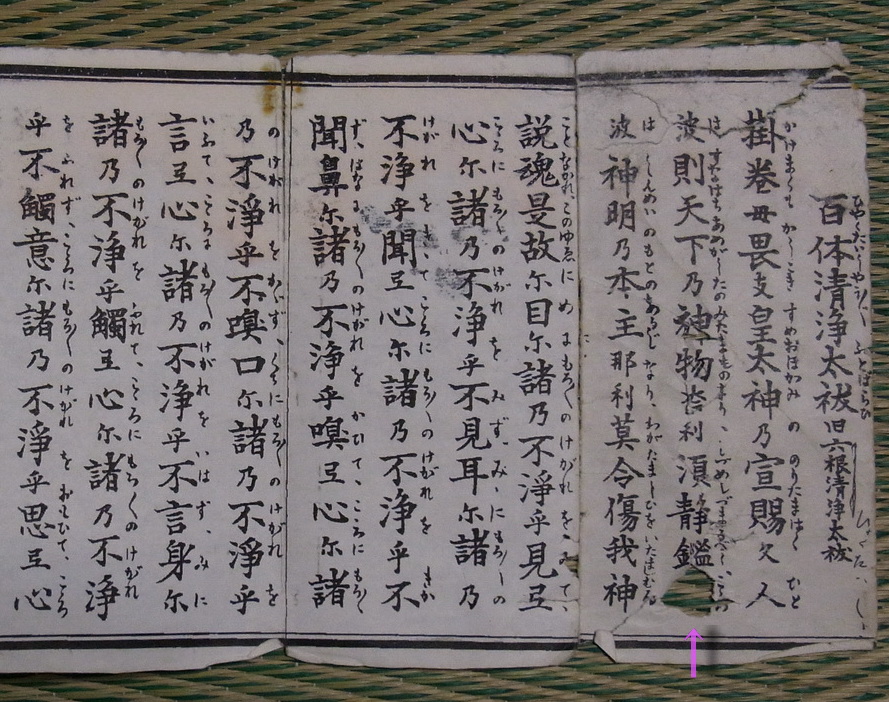 百体清浄太祓旧六根清浄太祓
かけまくも かしこき すめおほかみ の のりたまはく ひと
掛巻毋畏支皇太神乃宣賜久人
は すなはち あめがしたのみたまものなり
波則天下乃神物奈利須静鑑
は しんめいのもとのあるじ なり、わがたましひをいたましむる
波神明乃本主那利莫令傷我神
ことなかれ、このゆゑに め にもろ〳〵のけがれ を みて、
説魂是故尓目尓諸乃不淨乎見弖
こころに もろ〳〵のけがれ を みず、み、にもろ〳〵の
心尓諸乃不浄乎不見耳尓諸乃
けがれ を きいて こころに もろ〳〵のけがれを きか
不浄乎聞弖心尓諸乃不浄乎不
ず、はなに もろ〳〵のけがれ を かひで、こころに もろ〳〵
聞鼻尓諸乃不浄乎嗅弖心尓諸
の けがれ を かがず、くちにもろ〳〵の けがれ を
乃不淨乎不嗅口尓諸乃不淨乎
いふて、こころに もろ〳〵のけがれ を いはず、みに
言弖心尓諸乃不浄乎不言身尓
もろ〳〵のけがれ を ふれて、こころに もろ〳〵の けがれ
諸乃不淨乎觸弖心尓諸乃不淨
を ふれず、こころに もろ〳〵のけがれ を おもひて、こころ
乎不觸意尓諸乃不淨乎思弖心